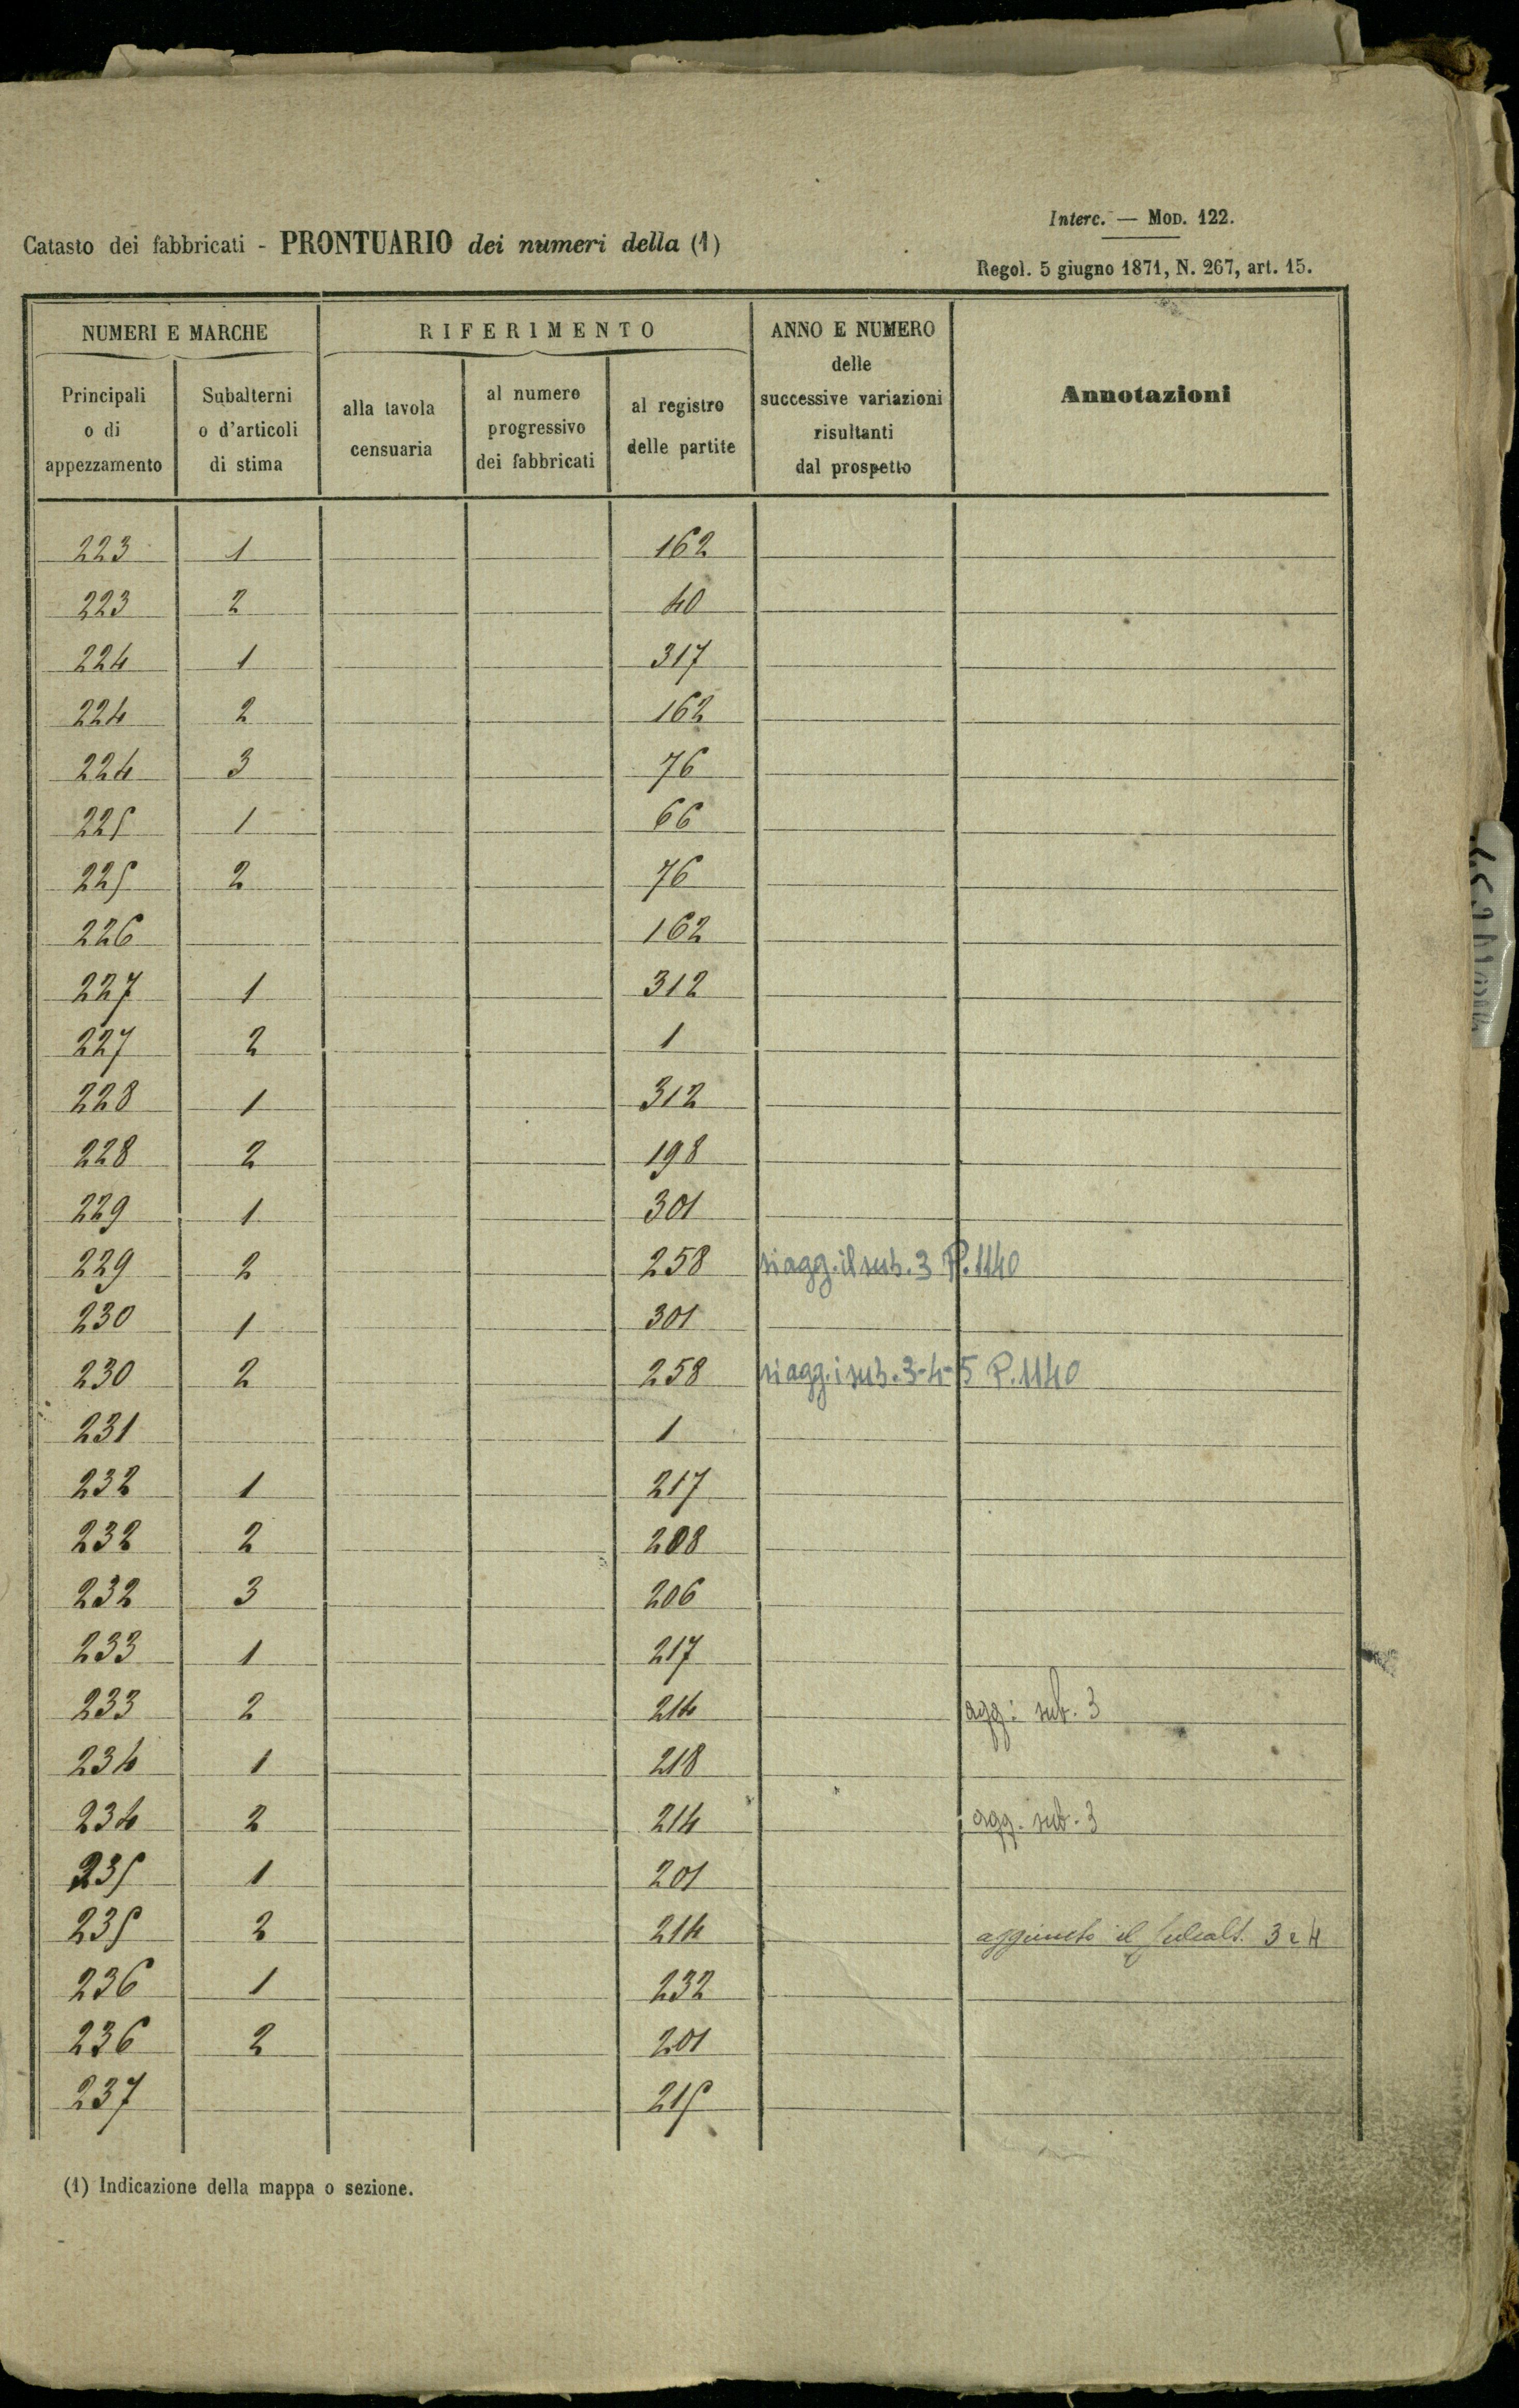 Interc. — Mod. 122.
Catasto dei fabbricati - PRONTUARIO dei numeri della (1)
Regol. 5 giugno 1871, N. 267, art. 15.
NUMERI E MARCHE RIFERIMENTO ANNO E NUMERO delle successive variazioni risultanti dal prospetto Annotazioni
Principali o di appezzamento Subalterni o d'articoli di stima alla tavola censuaria al numero progressivo dei fabbricati al registro delle partite
223 1 162
223 2 40
224 1 317
224 2 162
224 3 76
225 1 66
225 2 76
226 162
227 1 312
227 2 1
228 1 312
228 2 198
229 1 301
229 2 258 si agg. il sub. 3 P. 1140
230 1 301
230 2 258 si agg. i sub. 3-4-5 P. 1140
231 1
232 1 217
232 2 208
232 3 206
233 1 217
233 2 214 agg: sub. 3
234 1 218
234 2 214 agg. sub. 3
235 1 201
235 2 214 aggiunto il subalt. 3 e 4
236 1 232
236 2 201
237 215
(1) Indicazione della mappa o sezione.